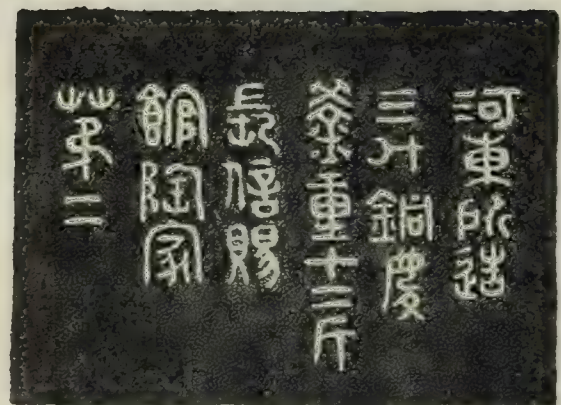 河東所造
三斗銅慶
釜重十二斤
長信賜
館陶家
苐二